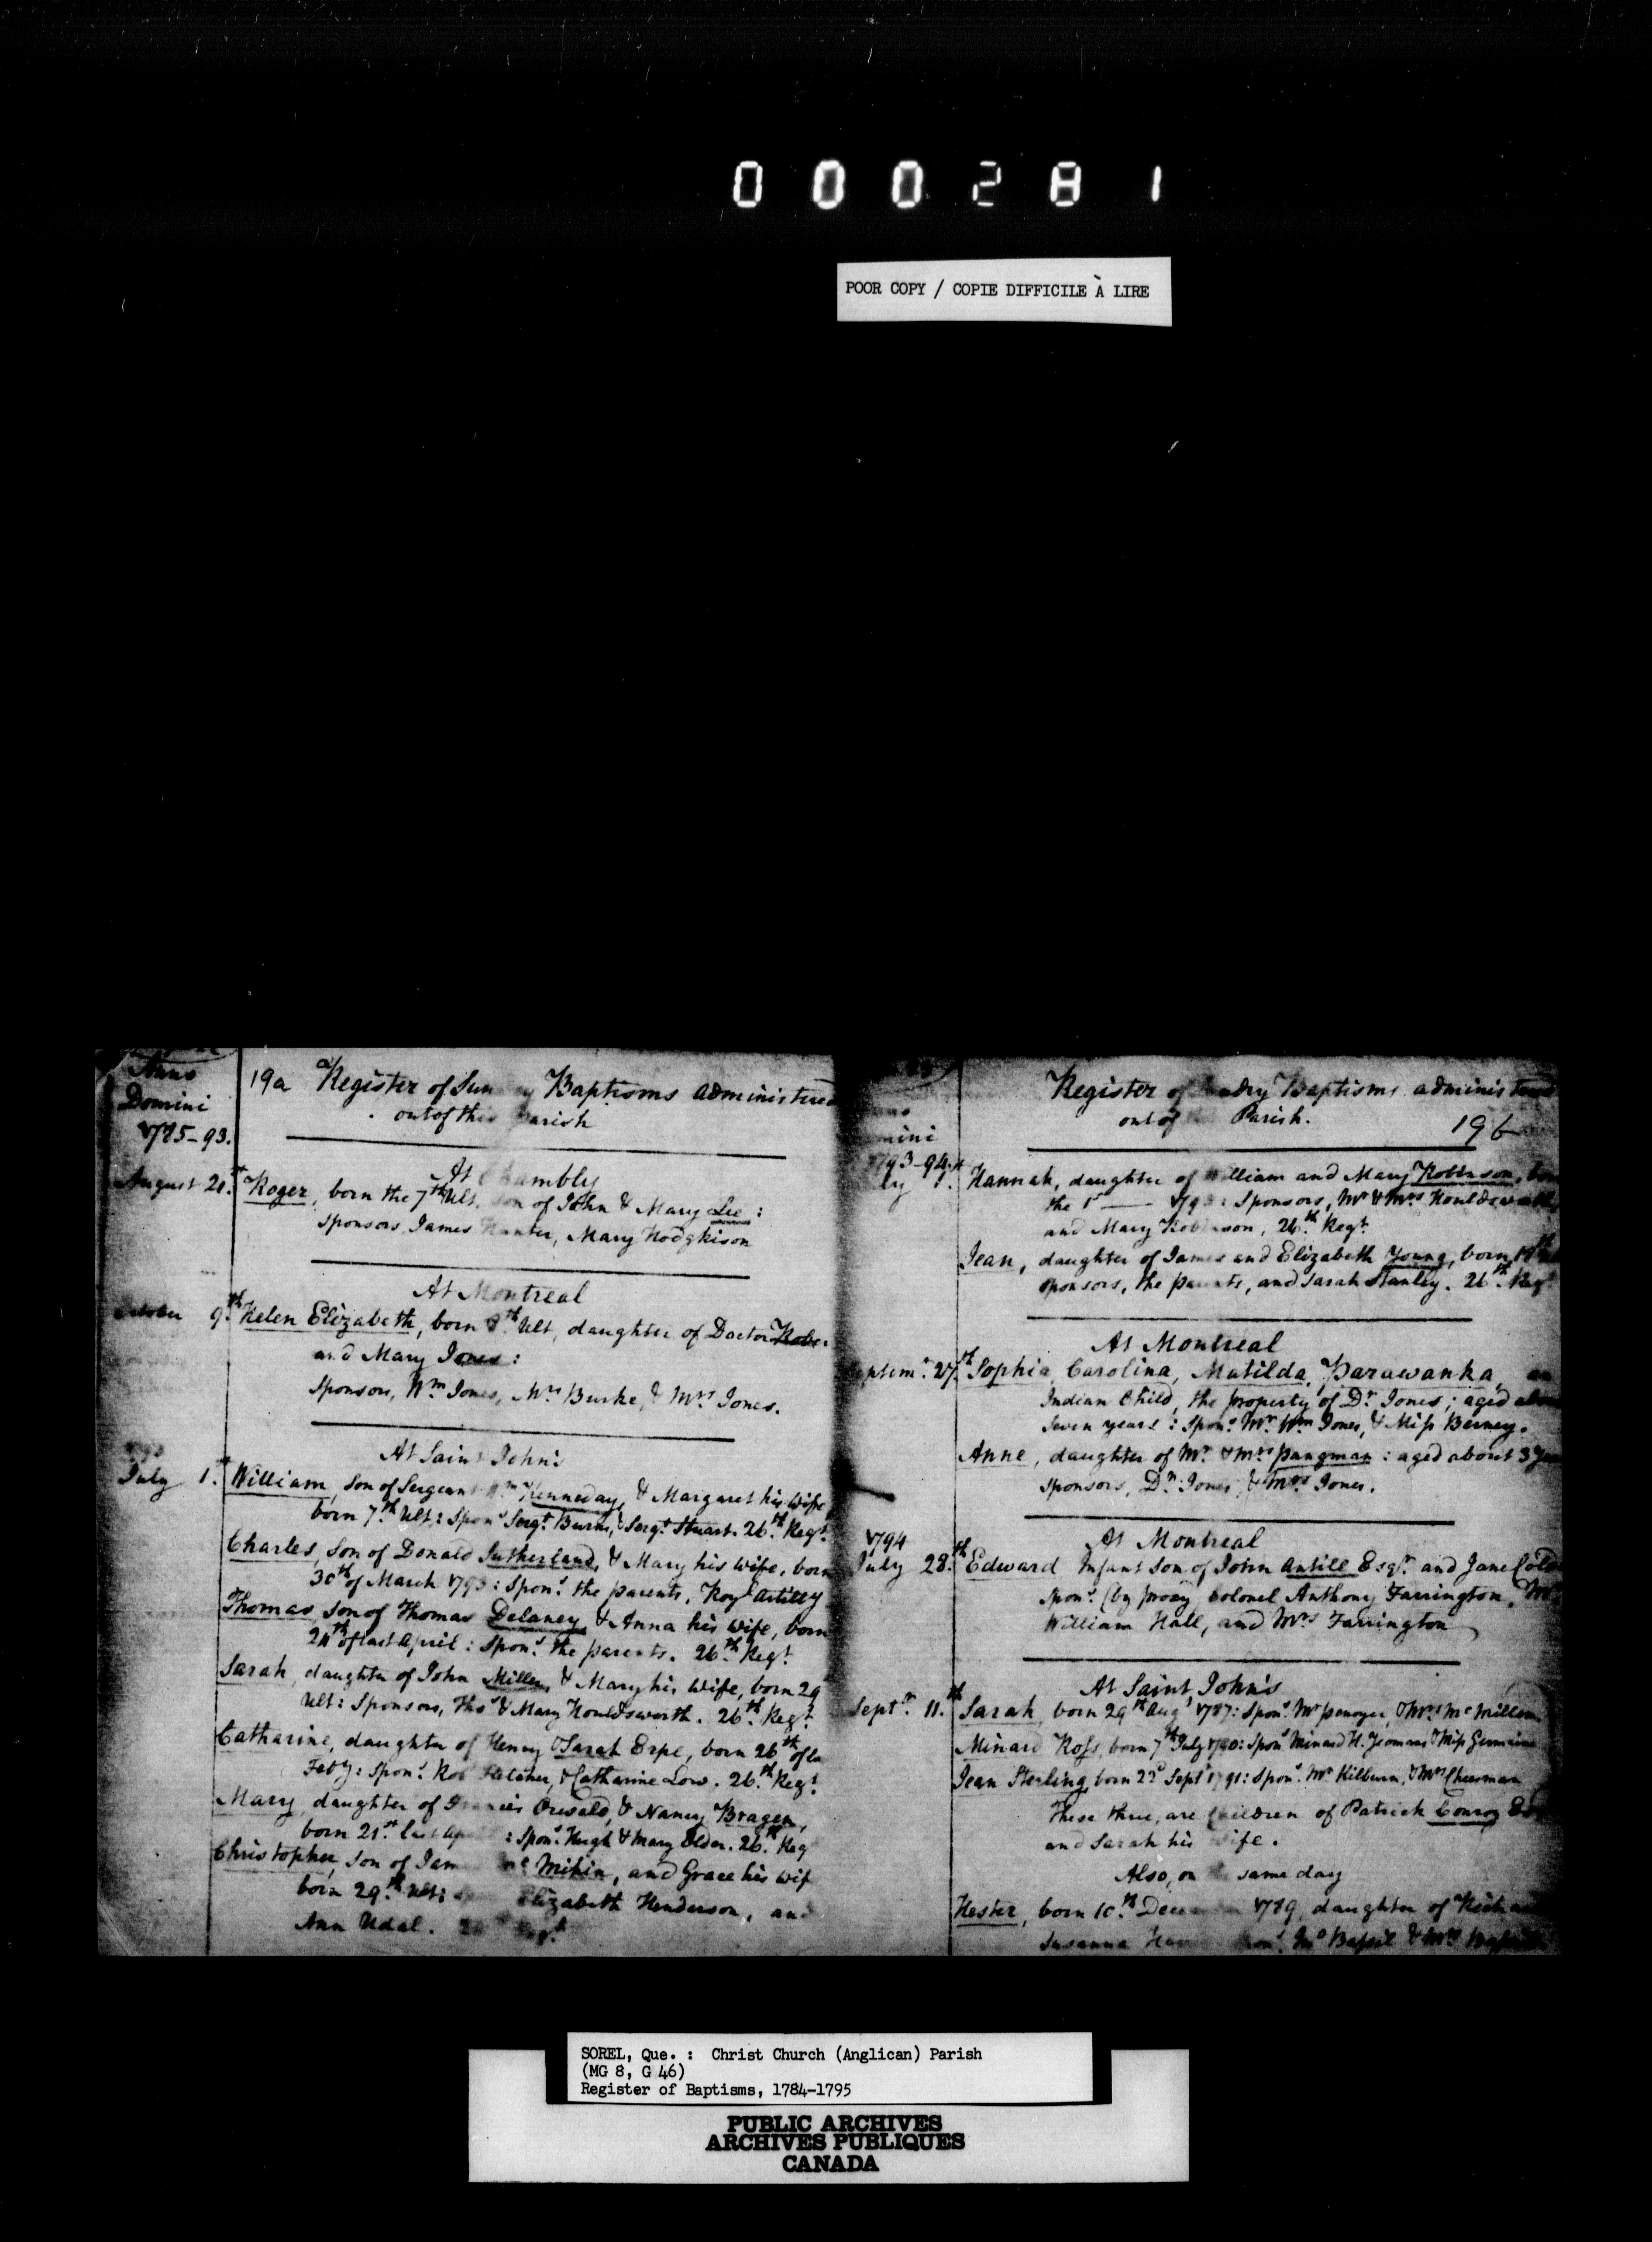 000281
POOR COPY / COPIE DIFFICILE À LIRE
Anno
Domini
1785-93.
19a Register of Baptisms administered
out of this Parish
At Chambly
August 21.st Roger, born the 7th Ult. son of John & Mary Lee :
Sponsors James Hunter, Mary Hodgkison
At Montreal
October 9.th Helen Elizabeth, born 8.th Ult, daughter of Doctor
and Mary Jones :
Sponsors, Wm Jones, Mrs Burke, & Mrs Jones.
At Saint John's
July 1.st William, son of Sergeant Wm Kenneday, & Margaret his Wife
born 7.th Ult: Spons Sergt Burns, & Sergt Stuart. 26.th Regt
Charles, son of Donald Sutherland, & Mary his Wife, born
30th of March 1793 : Spons the parents, Royl Artilly
Thomas, son of Thomas Delaney & Anna his wife, born
24th of last April : Spons the parents. 26.th Regt
Sarah, daughter of John Miller, & Mary his Wife, born 29
Ult: Sponsors, Thos & Mary Houldsworth. 26.th Regt
Catharine, daughter of Henry & Sarah Erpe, born 26th of la
Feby: Spons Rob Fletcher, & Catharine Low. 26.th Regt
Mary, daughter of & Nancy Bragen,
born 21.st last : Spons Hugh & Mary Elder. 26.th Reg
Christopher, son of Mc Mikin, and Grace his Wif
born 29.th Ult: Elizabeth Henderson, and
Ann Udal.
Register of Sundry Baptisms administered
out of Parish.
19b
1793-94.
1.st Hannah, daughter of William and Mary Robinson,
the 1st — 1793 : Sponsors, Mr & Mrs Houldsworth
and Mary Robinson, 26.th Regt
Jean, daughter of James and Elizabeth Young, born
Sponsors, the parents, and Sarah Stanley. 26.th Regt
At Montreal
27.th Sophia, Carolina, Matilda, Parawanka, an
Indian Child, the property of Dr Jones; aged about
seven years : Spons Mr Wm Jones, & Miss Berney.
Anne, daughter of Mr & Mrs Pangman : aged about 3
Sponsors, Dr Jones, & Mrs Jones.
At Montreal
1794
July 28.th Edward Infant son of John Antill Esqr and Jane
Spons (by proxy) Colonel Anthony Farrington,
William Hall, and Mrs Farrington
At Saint John's
Septr 11.th Sarah, born 29th Augt 1787: Spons Mr Penoyer, & Mrs Mc Millan
Minard Ross, born 7th July 1790: Spons Minard H. Yeomans & Miss Germaine
Jean Sterling born 23d Sept 1791: Spons Mr Kilburn, & Mrs Cheerman
These three, are Children of Patrick Conroy
and Sarah his Wife.
Also, on same day
Hester, born 10.th 1789, daughter of
Susanna
SOREL, Que. : Christ Church (Anglican) Parish
(MG 8, G 46)
Register of Baptisms, 1784-1795
PUBLIC ARCHIVES
ARCHIVES PUBLIQUES
CANADA